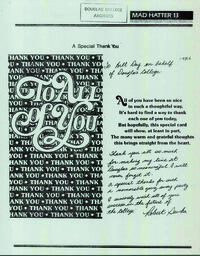 DOUGLAS COLLEGE
ARCHIVES
MAD HATTER 13
A Special Thank You
THANK YOU • THANK YOU • THANK YOU
To All
of You
THANK YOU • THANK YOU • THANK YOU
on behalf
of Douglas College.
All of you have been so nice
in such a thoughtful way,
It's hard to find a way to thank
each one of you today,
But hopefully, this special card
will show, at least in part,
The many warm and grateful thoughts
this brings straight from the heart.
Thank you all so much
for making my time at
Douglas so
never forget it.
A special thanks for such
a going away party
I wish you all of
success in the future of
the College.
Robert